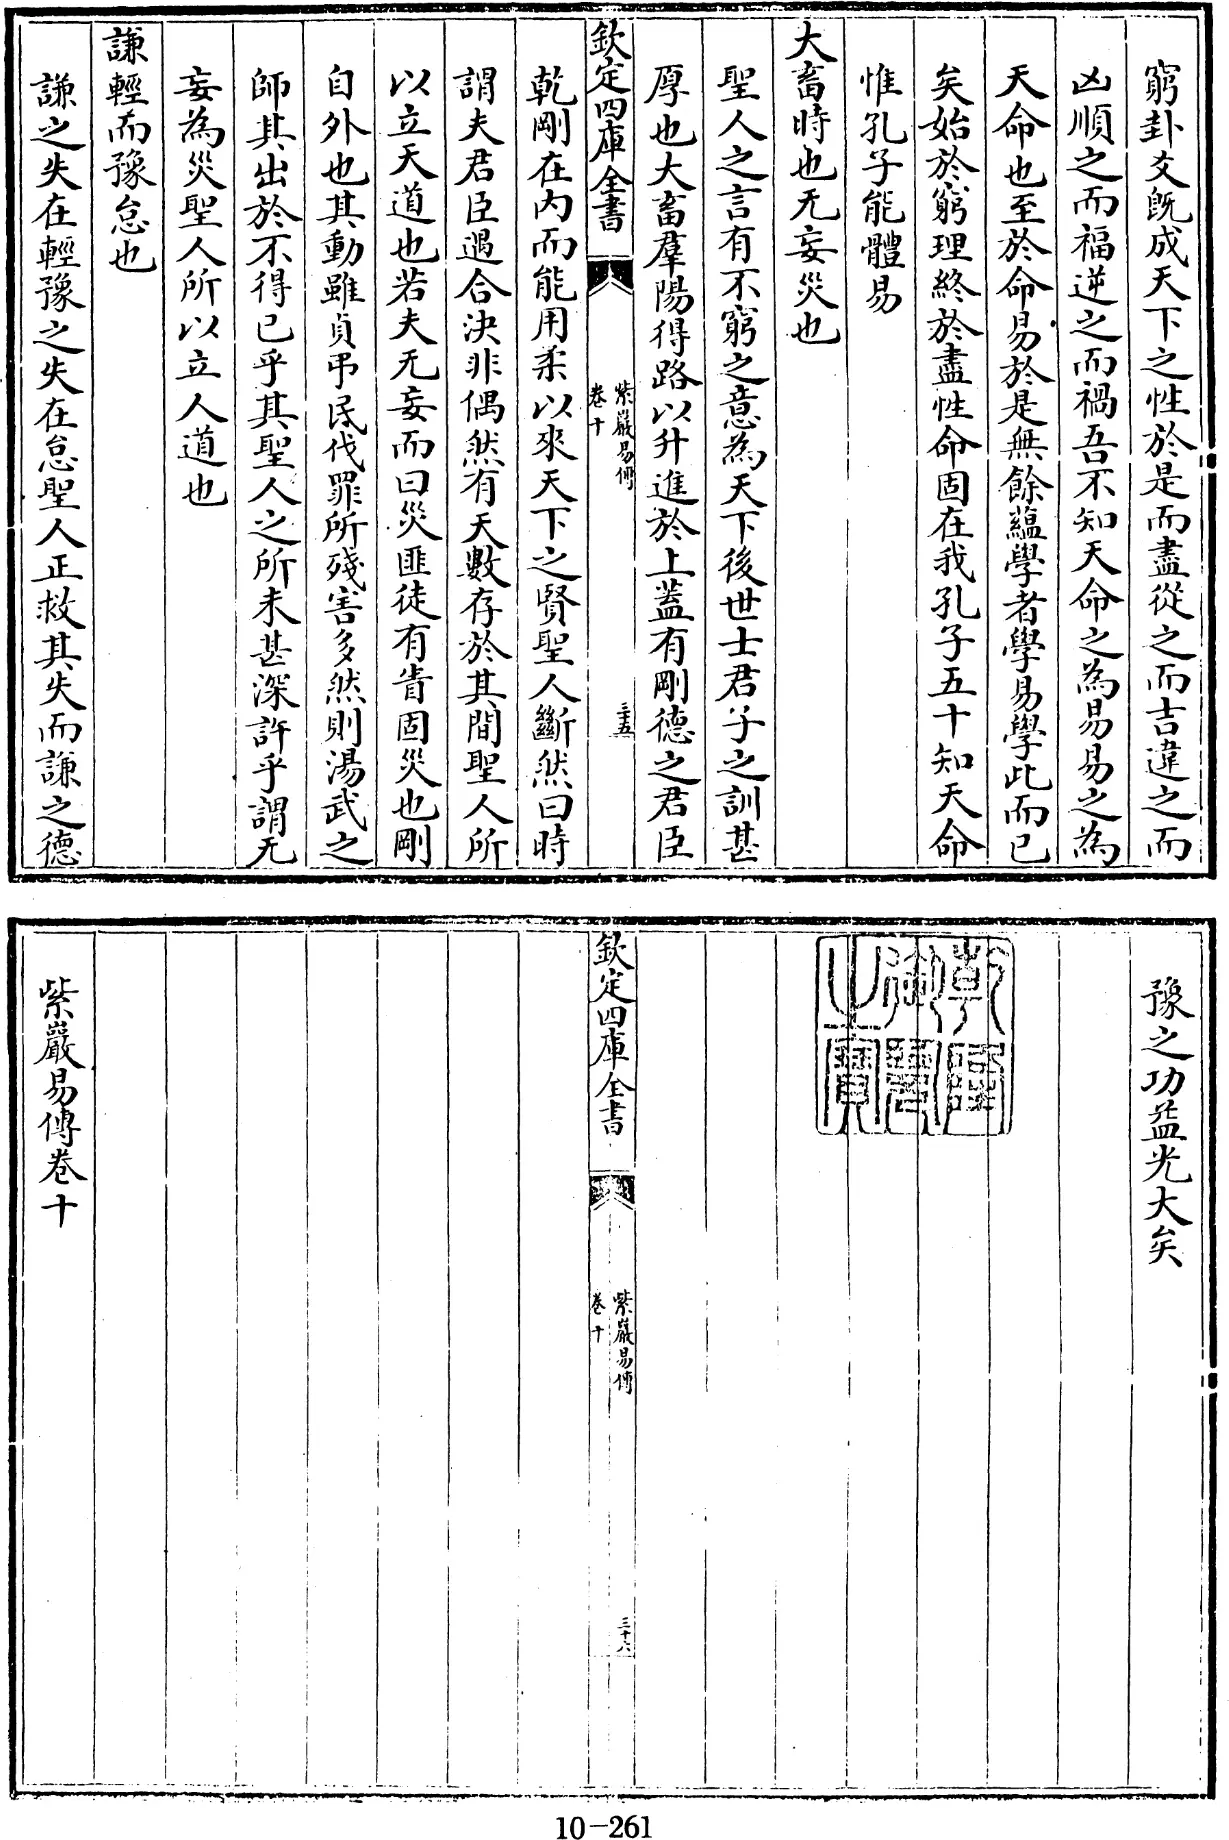 窮卦爻既成天下之性於是而盡從之而吉違之而
凶順之而福逆之而禍吾不知天命之為易易之為
天命也至於命易於是無餘蘊學者學易學此而已
矣始於窮理終於盡性命固在我孔子五十知天命
惟孔子能體易
大畜時也无妄災也
聖人之言有不窮之意為天下後世士君子之訓甚
厚也大畜羣陽得路以升進於上蓋有剛德之君臣
欽定四庫全書
紫巖易傳
卷十
三五
乾剛在內而能用柔以來天下之賢聖人斷然曰時
謂夫君臣遇合決非偶然有天數存於其間聖人所
以立天道也若夫无妄而曰災匪徒有眚固災也剛
自外也其動雖貞弔民伐罪所殘害多然則湯武之
師其出於不得已乎其聖人之所未甚深許乎謂无
妄為災聖人所以立人道也
謙輕而豫怠也
謙之失在輕豫之失在怠聖人正救其失而謙之德
豫之功益光大矣
乾隆御覽之寶
欽定四庫全書
紫巖易傳
卷十
三十六
紫巖易傳卷十
10-261